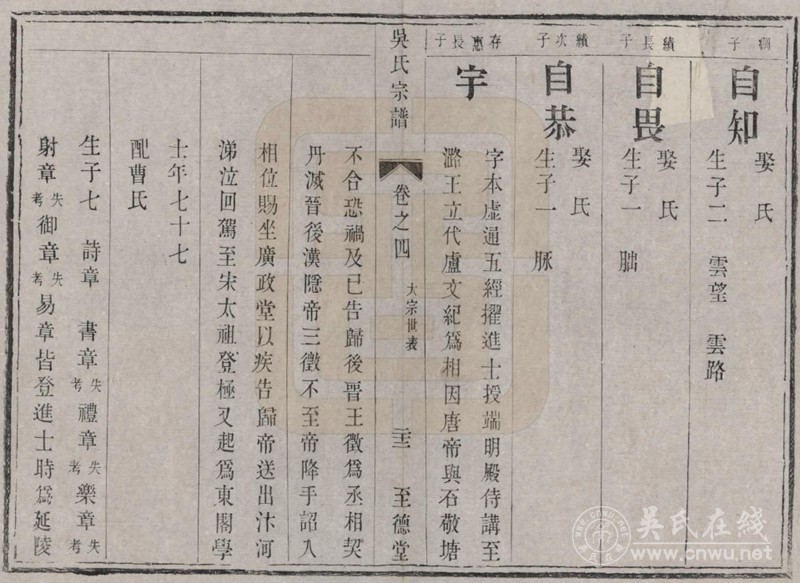 痢子
自知
娶 氏
生子二 雲望 雲路
績長子
自畏
娶 氏
生子一 朏
績次子
自恭
娶 氏
生子一 脈
存惠長子
宇
字本虛通五經擢進士授端明殿侍講至
潞王立代盧文紀爲相因唐帝與石敬塘
吳氏宗譜 卷之四 大宗世表 二十三 至德堂
不合恐禍及已告歸後晉王徵爲丞相契
丹滅晉後漢隱帝三徵不至帝降手詔入
相位賜坐廣政堂以疾告歸帝送出汴河
涕泣回駕至宋太祖登極又起爲東閣學
士年七十七
配曹氏
生子七 詩章 書章失考禮章失考樂章失考
射章失考御章失考易章皆登進士時爲延陵
吳氏在线
www.cnwu.net